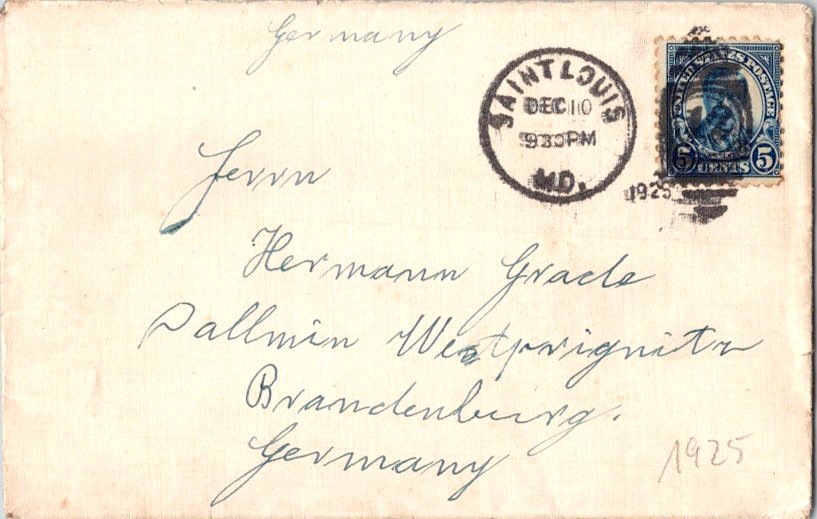 Germany
SAINT LOUIS
DEC 10
930 PM
MO.
1925
UNITED STATES POSTAGE
5 CENTS 5
Herrn
Hermann Grade
Dallmin Westprignitz
Brandenburg.
Germany
1925